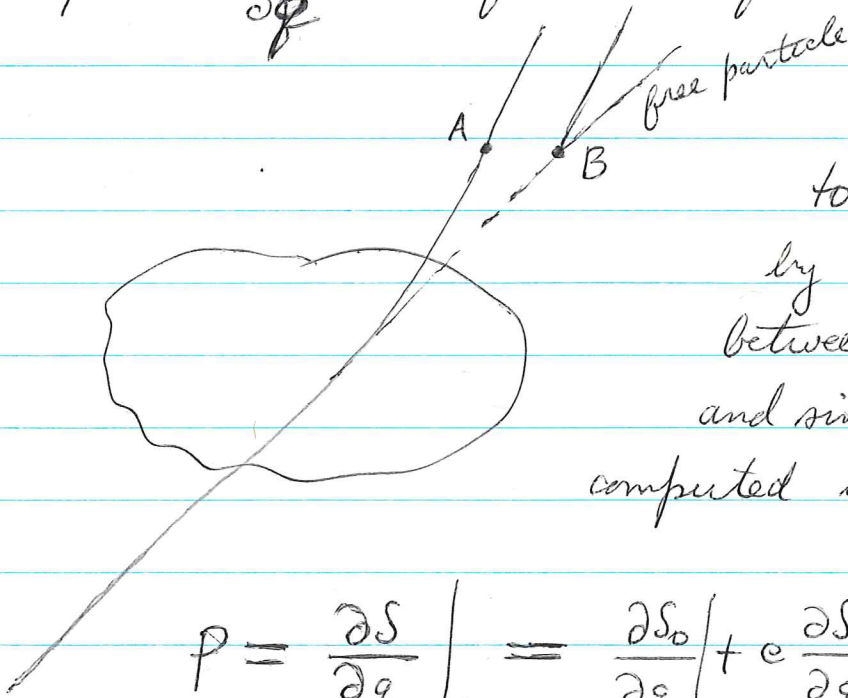 ∂q
free particle
A
B
to
by
betwee
and sin
computed
p = ∂S/∂q | = ∂S₀/∂q | + e ∂S/∂q